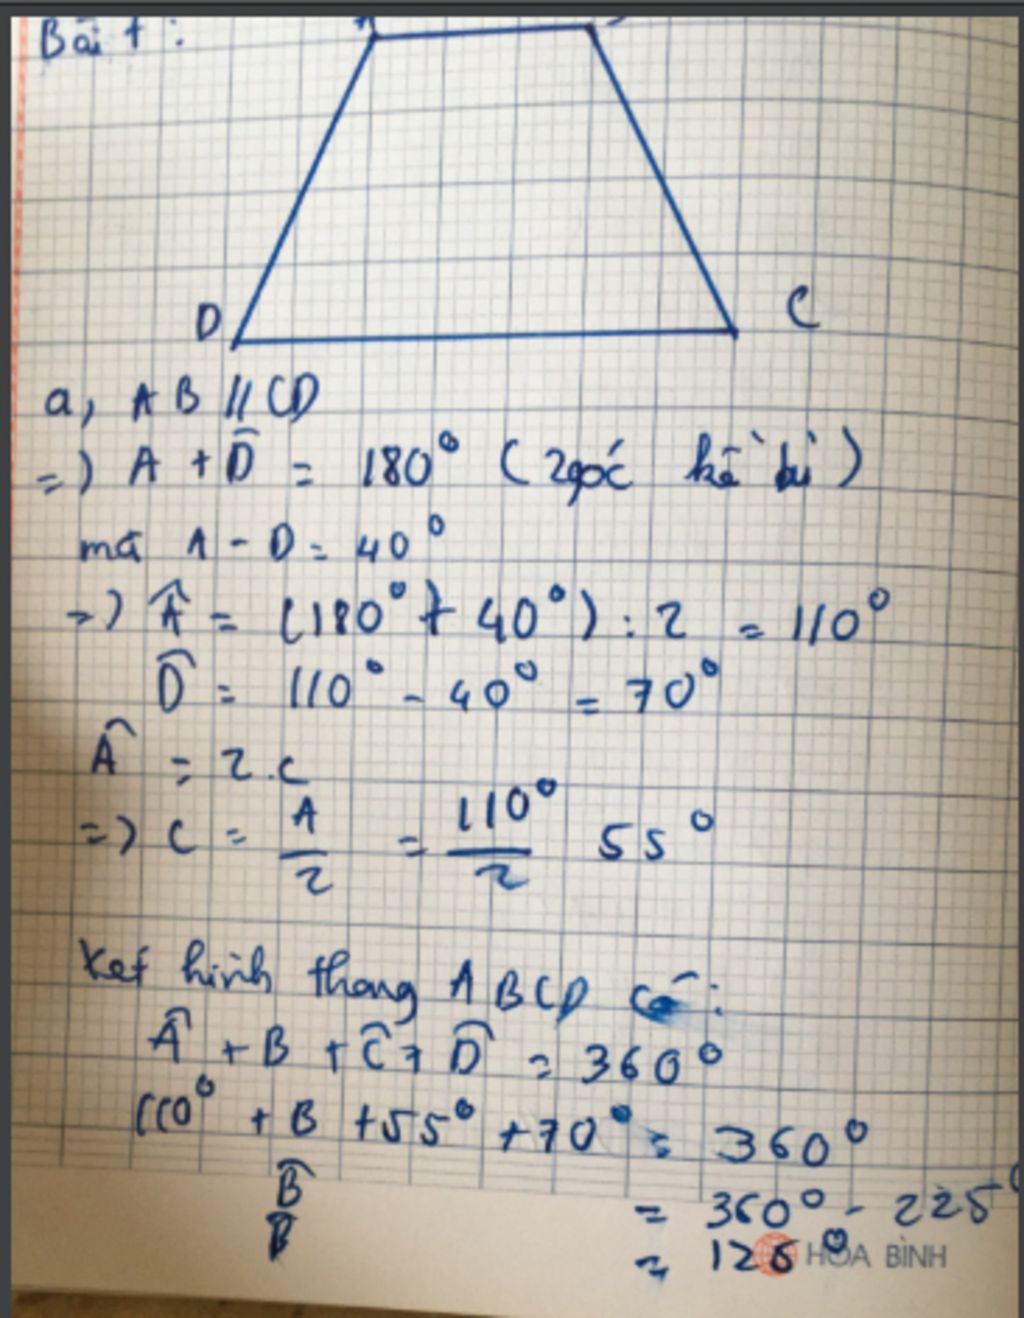 Bài 1:
D C
a, AB // CD
=) A + D̂ = 180° (2góc kề bù)
mà A - D = 40°
=) Â = (180° + 40°) : 2 = 110°
D̂ = 110° - 40° = 70°
Â = 2.C
=) C = A/2 = 110°/2 55°
Xét hình thang ABCD có:
Â + B + Ĉ + D̂ = 360°
110° + B + 55° + 70° = 360°
B̂ = 360° - 225°
B = 125°
HÒA BÌNH